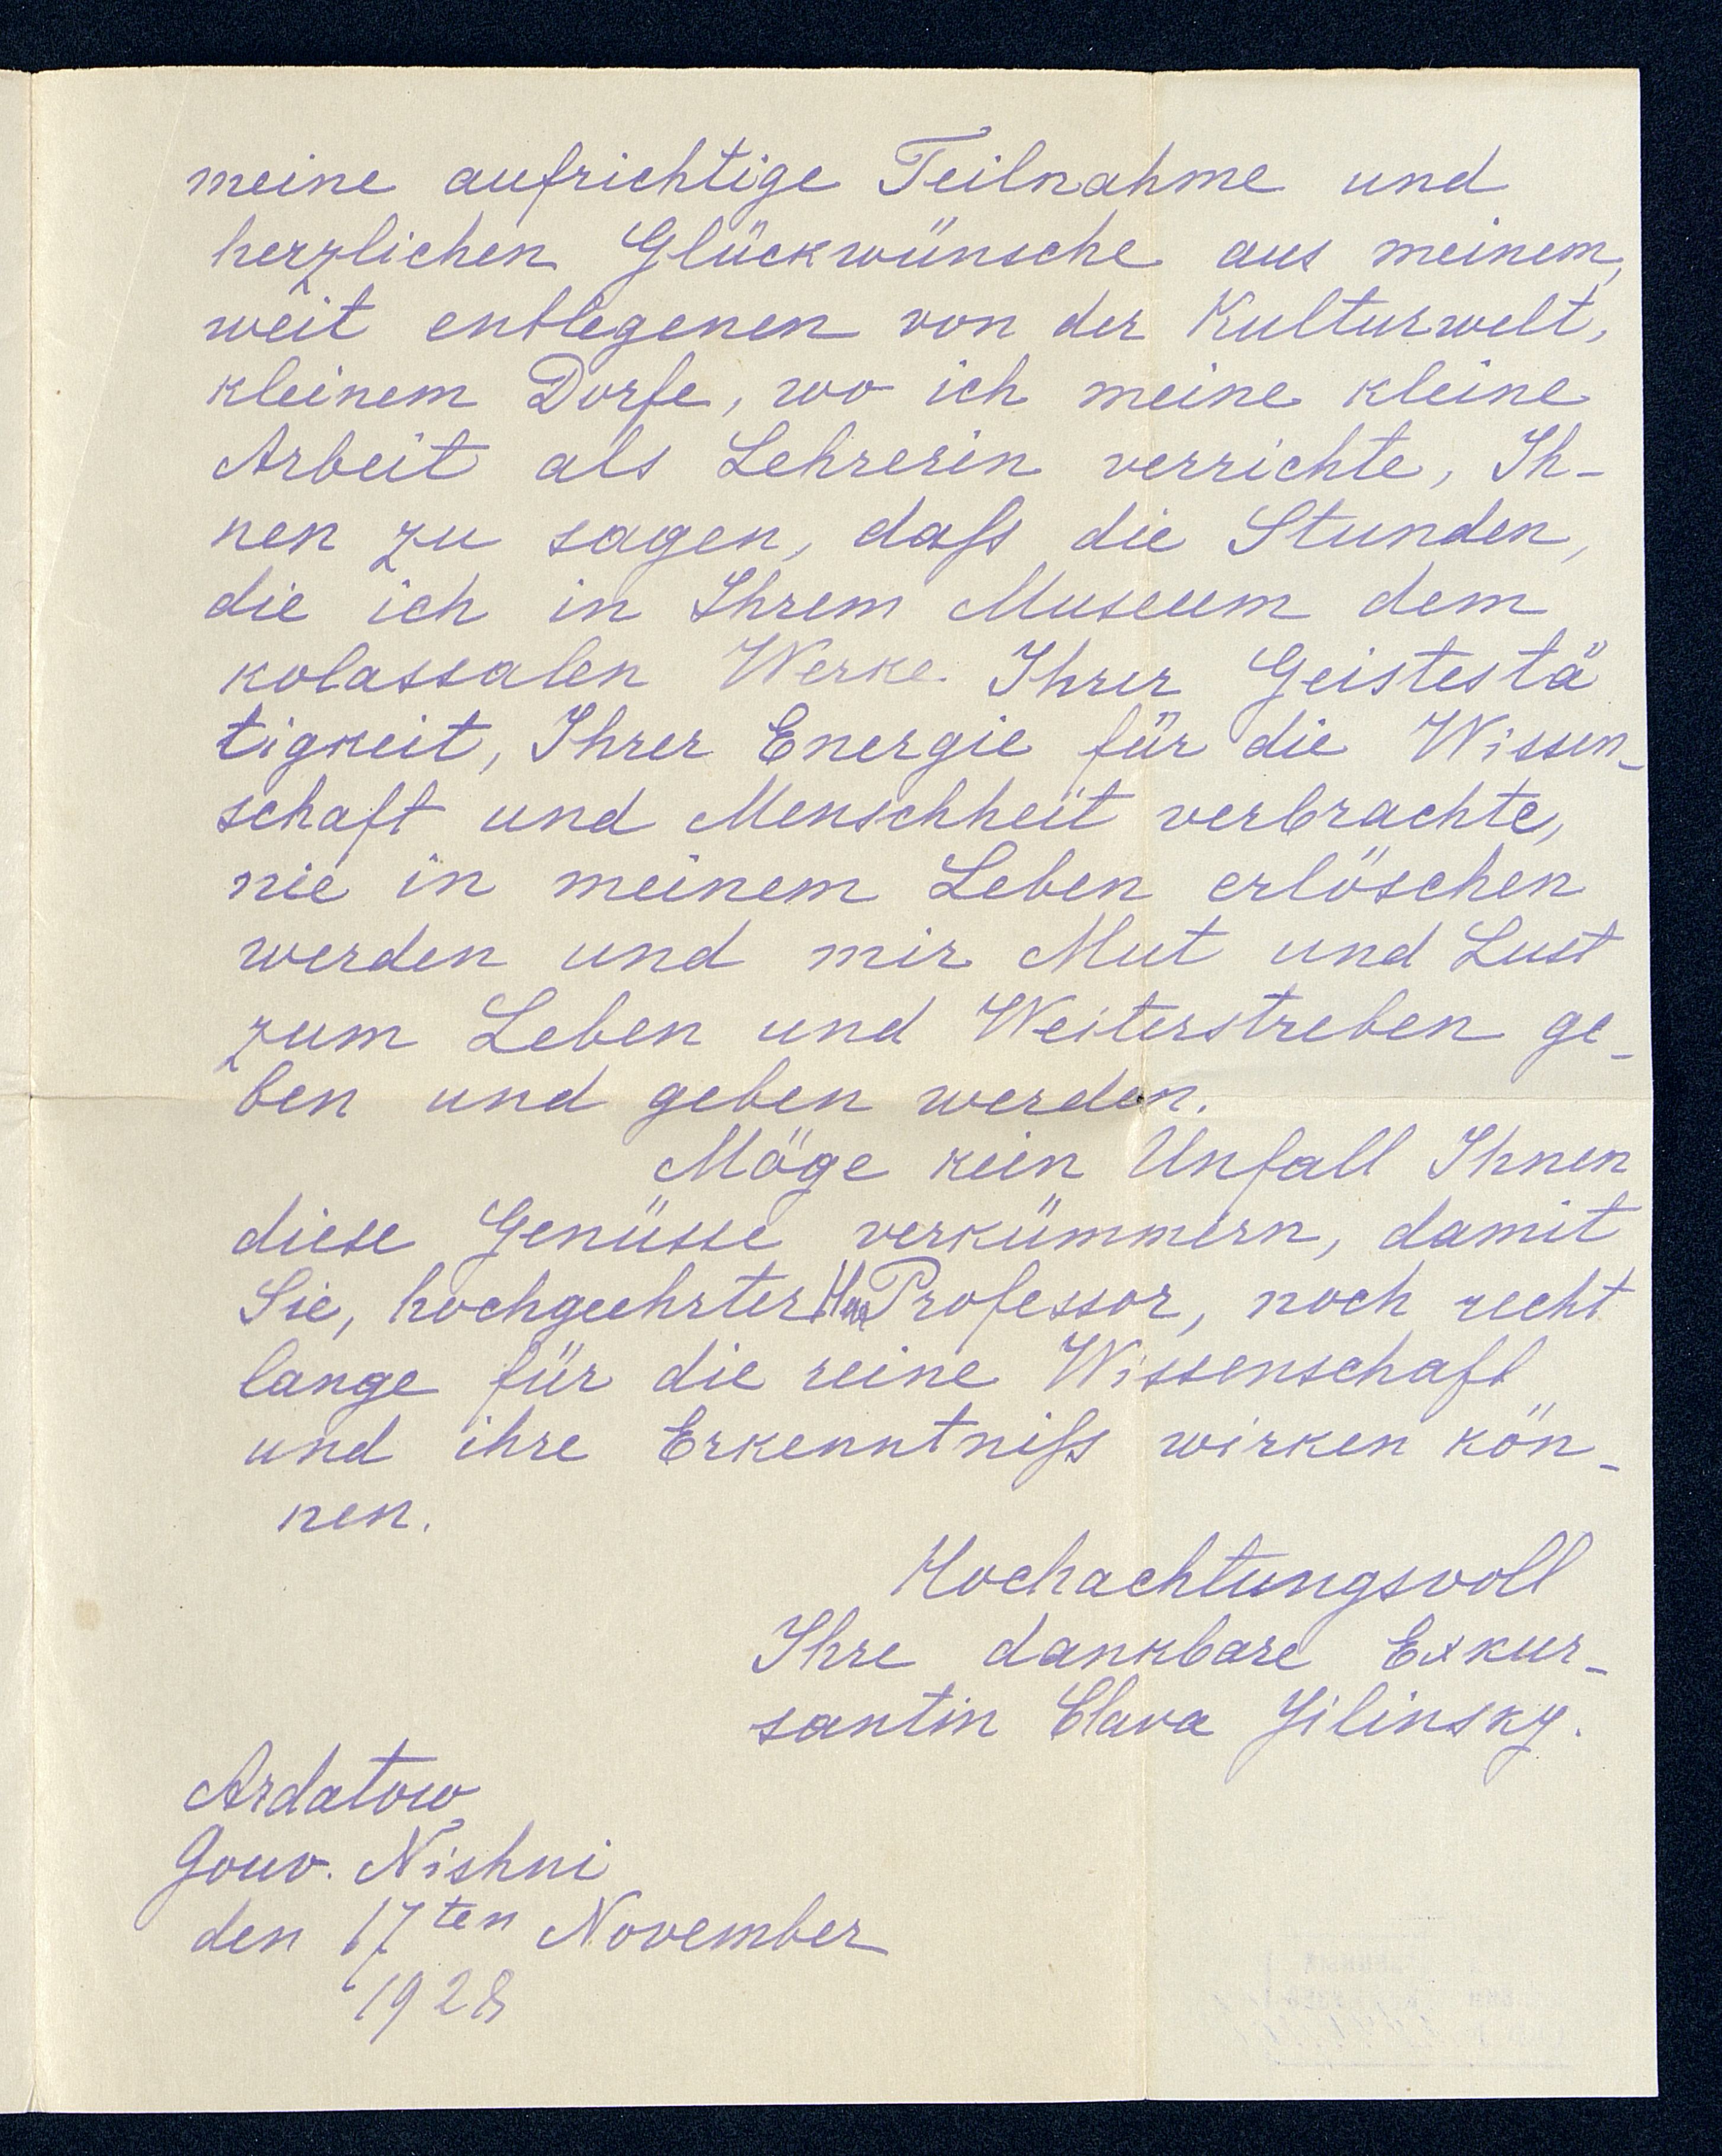 meine aufrichtige Teilnahme und
herzlichen Glückwünsche aus meinem,
weit entlegenen von der Kulturwelt,
kleinem Dorfe, wo ich meine kleine
Arbeit als Lehrerin verrichte, Ih-
nen zu sagen, daſs die Stunden,
die ich in Ihrem Museum dem
kolassalen Werke Ihrer Geistestä
tigkeit, Ihrer Energie für die Wissen-
schaft und Menschheit verbrachte,
nie in meinem Leben erlöschen
werden und mir Mut und Lust
zum Leben und Weiterstreben ge-
ben und geben werden.
Möge kein Unfall Ihnen
diese Genüsse verkümmern, damit
Sie, hochgeehrter Herr Professor, noch recht
lange für die reine Wissenschaft
und ihre Erkenntniſs wirken kön-
nen.
Hochachtungsvoll
Ihre dankbare Exkur-
santin Clara Jilinsky.
Ardatow
Gouv. Nishni
den 17ten November
1928